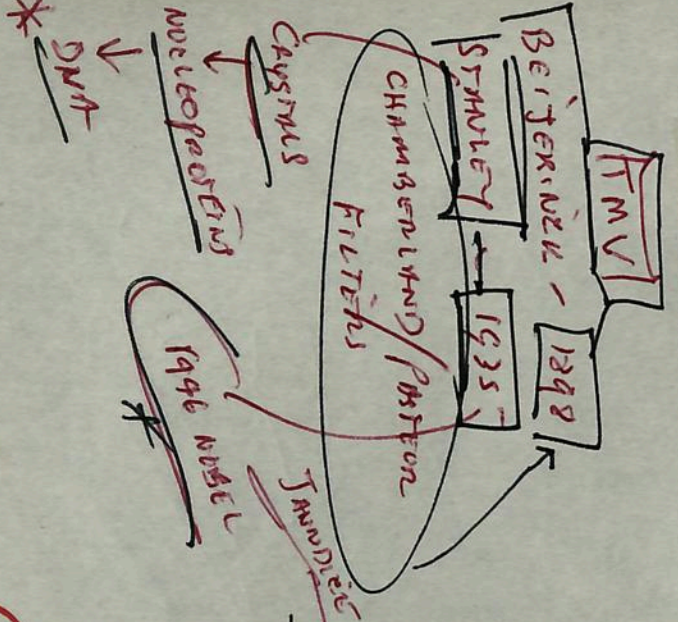 TMV
BEIJERINCK - 1898
STANLEY → 1935
CHAMBERLAND/PASTEUR
FILTERS
CRYSTALS
↓
NUCLEOPROTEINS
↓
* DNA
1946 NOBEL
*
JAUNDICE